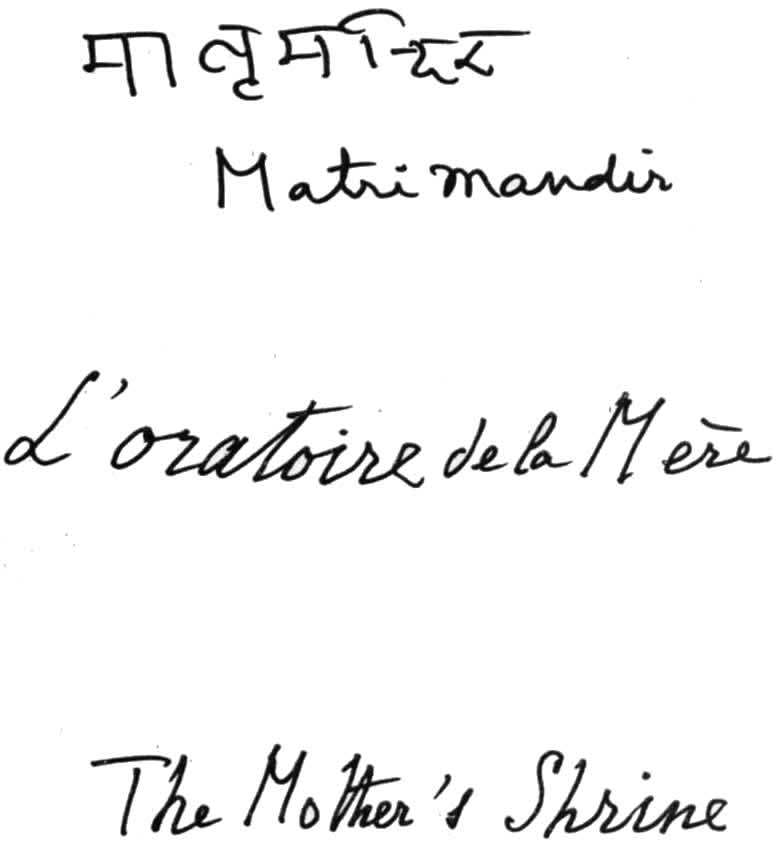 मातृमन्दिर
Matrimandir
L'oratoire de la Mère
The Mother's Shrine